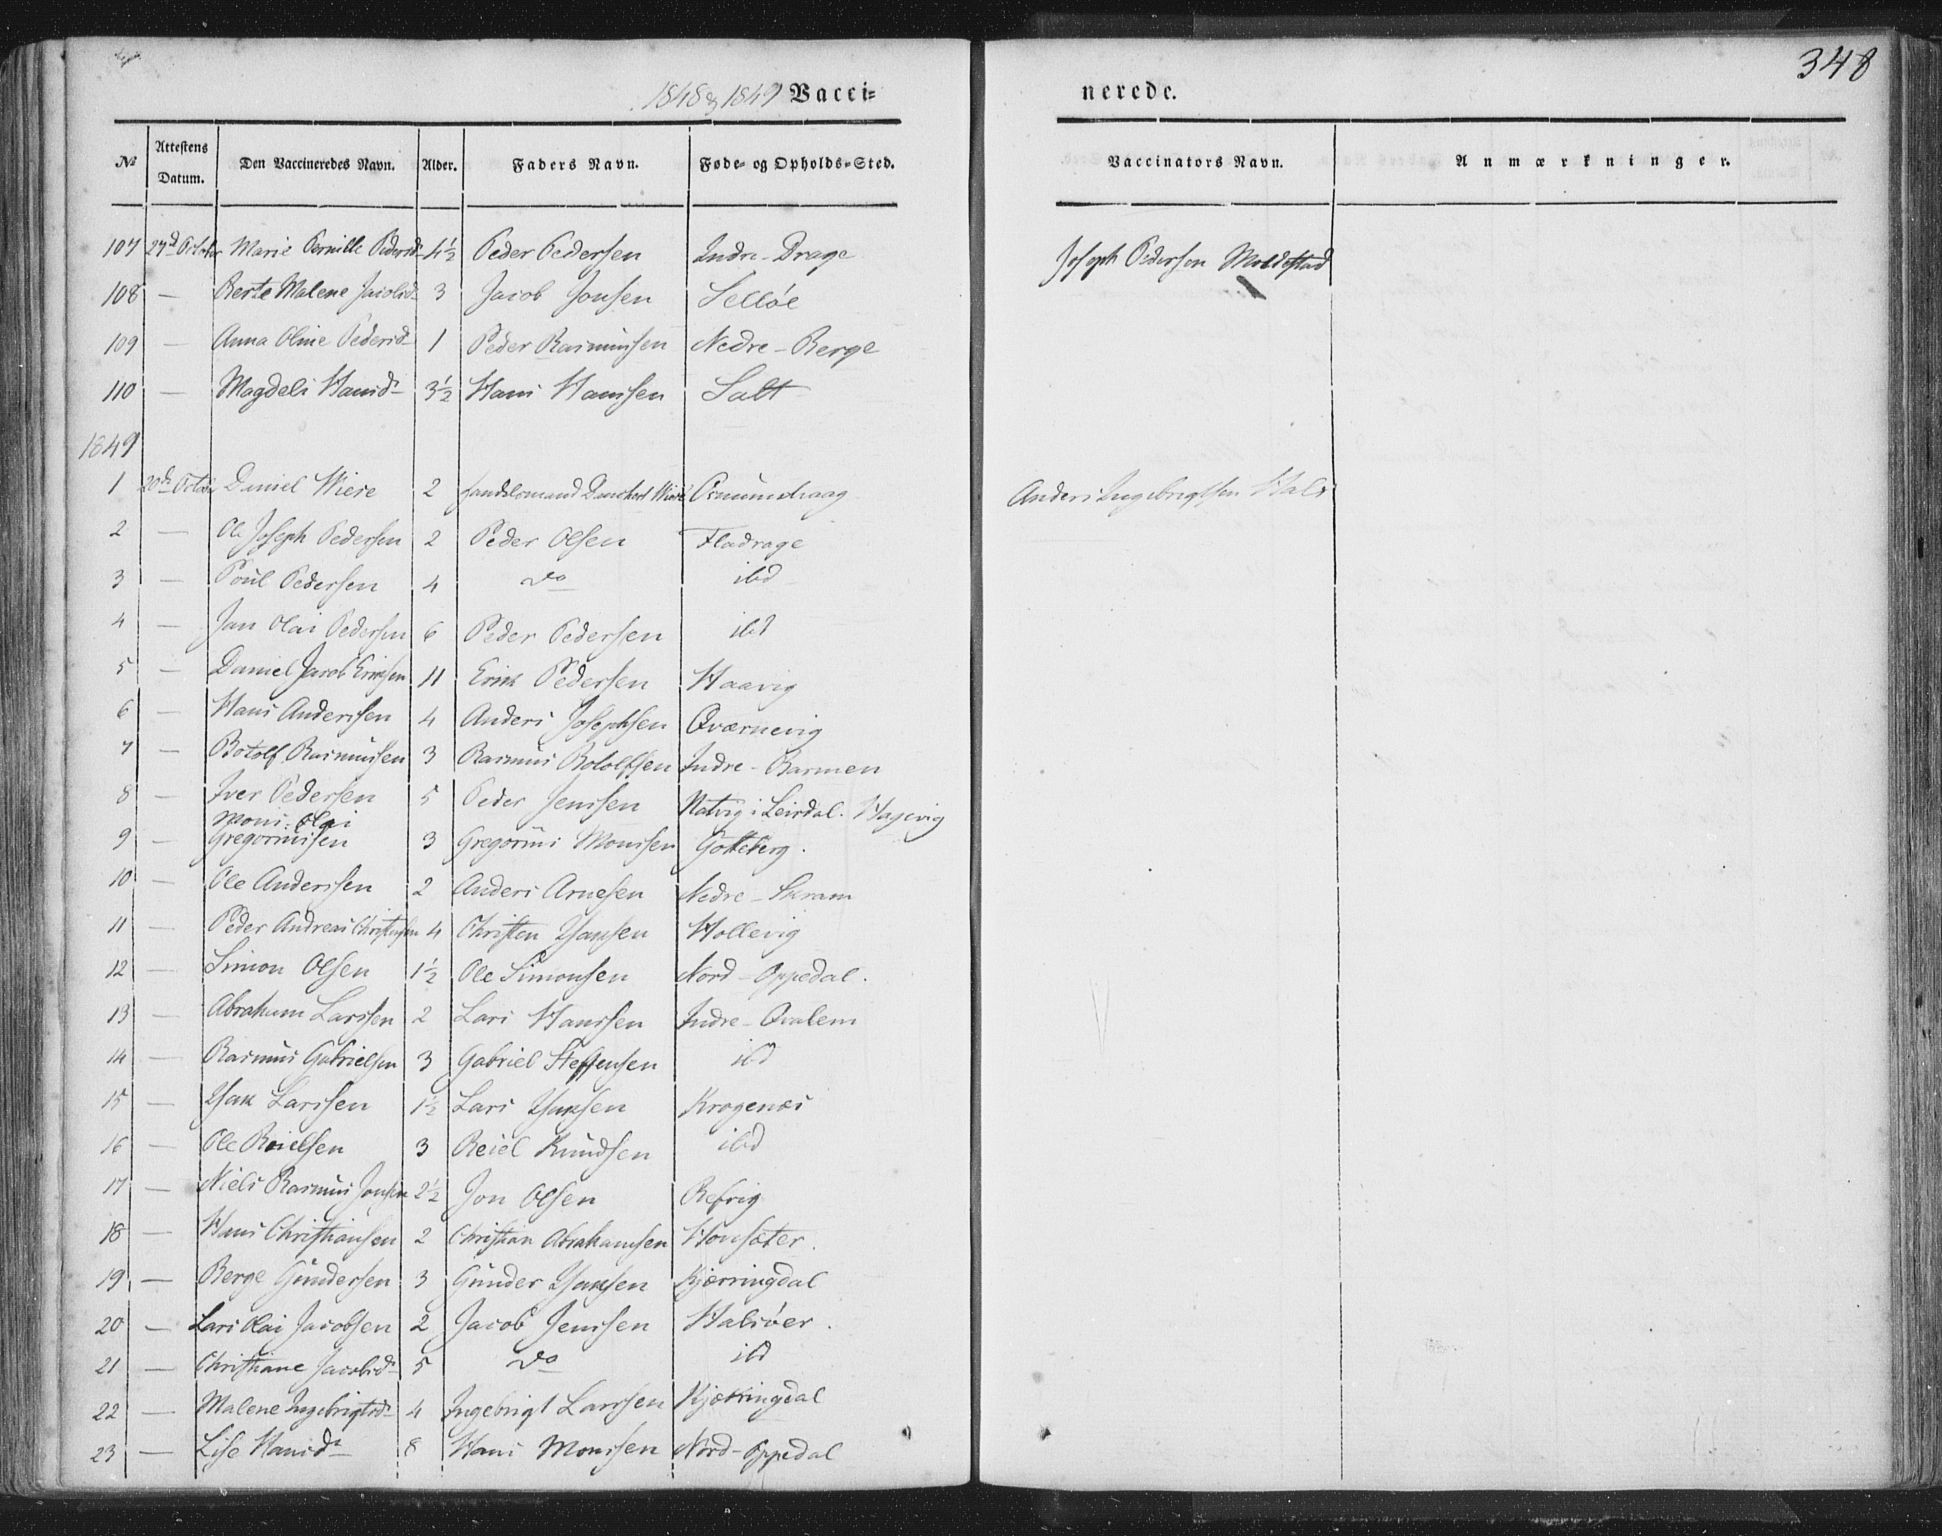 348
1848 & 1849 Vacci=
nerede.
No Attestens Datum. Den Vaccineredes Navn. Alder. Faders Navn. Føde- og Opholds-Sted. Vaccinators Navn. Anmærkninger.
107 27d October Marie Pernille Pedersd 4½ Peder Pedersen Indre-Drage Joseph Pedersen Moldestad
108 — Berte Malene Jacobsd 3 Jacob Jonsen Selløe
109 — Anna Oline Pedersd 1 Peder Rasmussen Nedre-Berge
110 — Magdeli Hansdr 3½ Hans Hanssen Salt
1849
1 20de Octob Daniel Wiese 2 Handelsmand Wiese Osmundvaag Anders Ingebrigtsen Hals
2 — Ole Joseph Pedersen 2 Peder Olsen Fladrage
3 — Poul Pedersen 4 do ibd
4 — Jan Olai Pedersen 6 Peder Pedersen ibd
5 — Daniel Jacob Ericsen 11 Erik Pedersen Haavig
6 — Hans Anderssen 4 Anders Josephsen Qværnevig
7 — Botolf Rasmussen 3 Rasmus Botolfsen Indre-Barmen
8 — Iver Pedersen 5 Peder Jenssen Natvig i Leirdal. Hagevig
9 — Mons Olai Gregoriussen 3 Gregorius Monssen Gotteberg.
10 — Ole Anderssen 2 Anders Arnesen Nedre-Skram
11 — Peder Andreas Christensen 4 Christen Isaksen Hollevig
12 — Simon Olsen 1½ Ole Simonsen Nord-Oppedal.
13 — Abraham Larssen 2 Lars Hanssen Indre-Qvalem
14 — Rasmus Gabrielsen 3 Gabriel Steffensen ibd
15 — Isak Larssen 1½ Lars Isaksen Krogenæs
16 — Ole Reielsen 3 Reiel Knudsen ibd
17 — Niels Rasmus Jonsen 2½ Jon Olsen Refvig
18 — Hans Christiansen 2 Christian Abrahamsen Honsæter.
19 — Berge Gundersen 3 Gunder Isaksen Kjærringdal
20 — Lars Olai Jacobsen 2 Jacob Jenssen Halsøer.
21 — Christiane Jacobsdr 5 do ibd
22 — Malene Ingebrigtsd 4 Ingebrigt Larssen Kjærringdal
23 — Lise Hansdr 8 Hans Monssen Nord-Oppedal